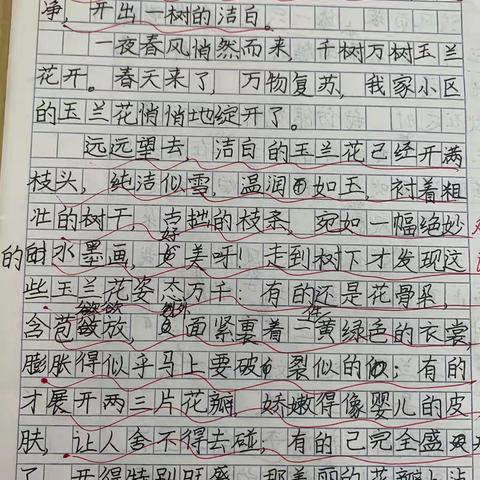 净，开出一树的洁白。
一夜春风悄然而来，千树万树玉兰
花开。春天来了，万物复苏，我家小区
的玉兰花悄悄地绽开了。
远远望去，洁白的玉兰花已经开满
枝头，纯洁似雪，温润如玉，衬着粗
壮的树干，古拙的枝条，宛如一幅绝妙
的水墨画，好美呀！走到树下才发现这
些玉兰花姿态万千：有的还是花骨朵，
含苞欲放，外面紧裹着一件黄绿色的衣裳，
膨胀得似乎马上要破裂似的；有的
才展开两三片花瓣，娇嫩得像婴儿的皮
肤，让人舍不得去碰；有的已完全盛
了，开得特别旺盛，那美丽的花瓣上